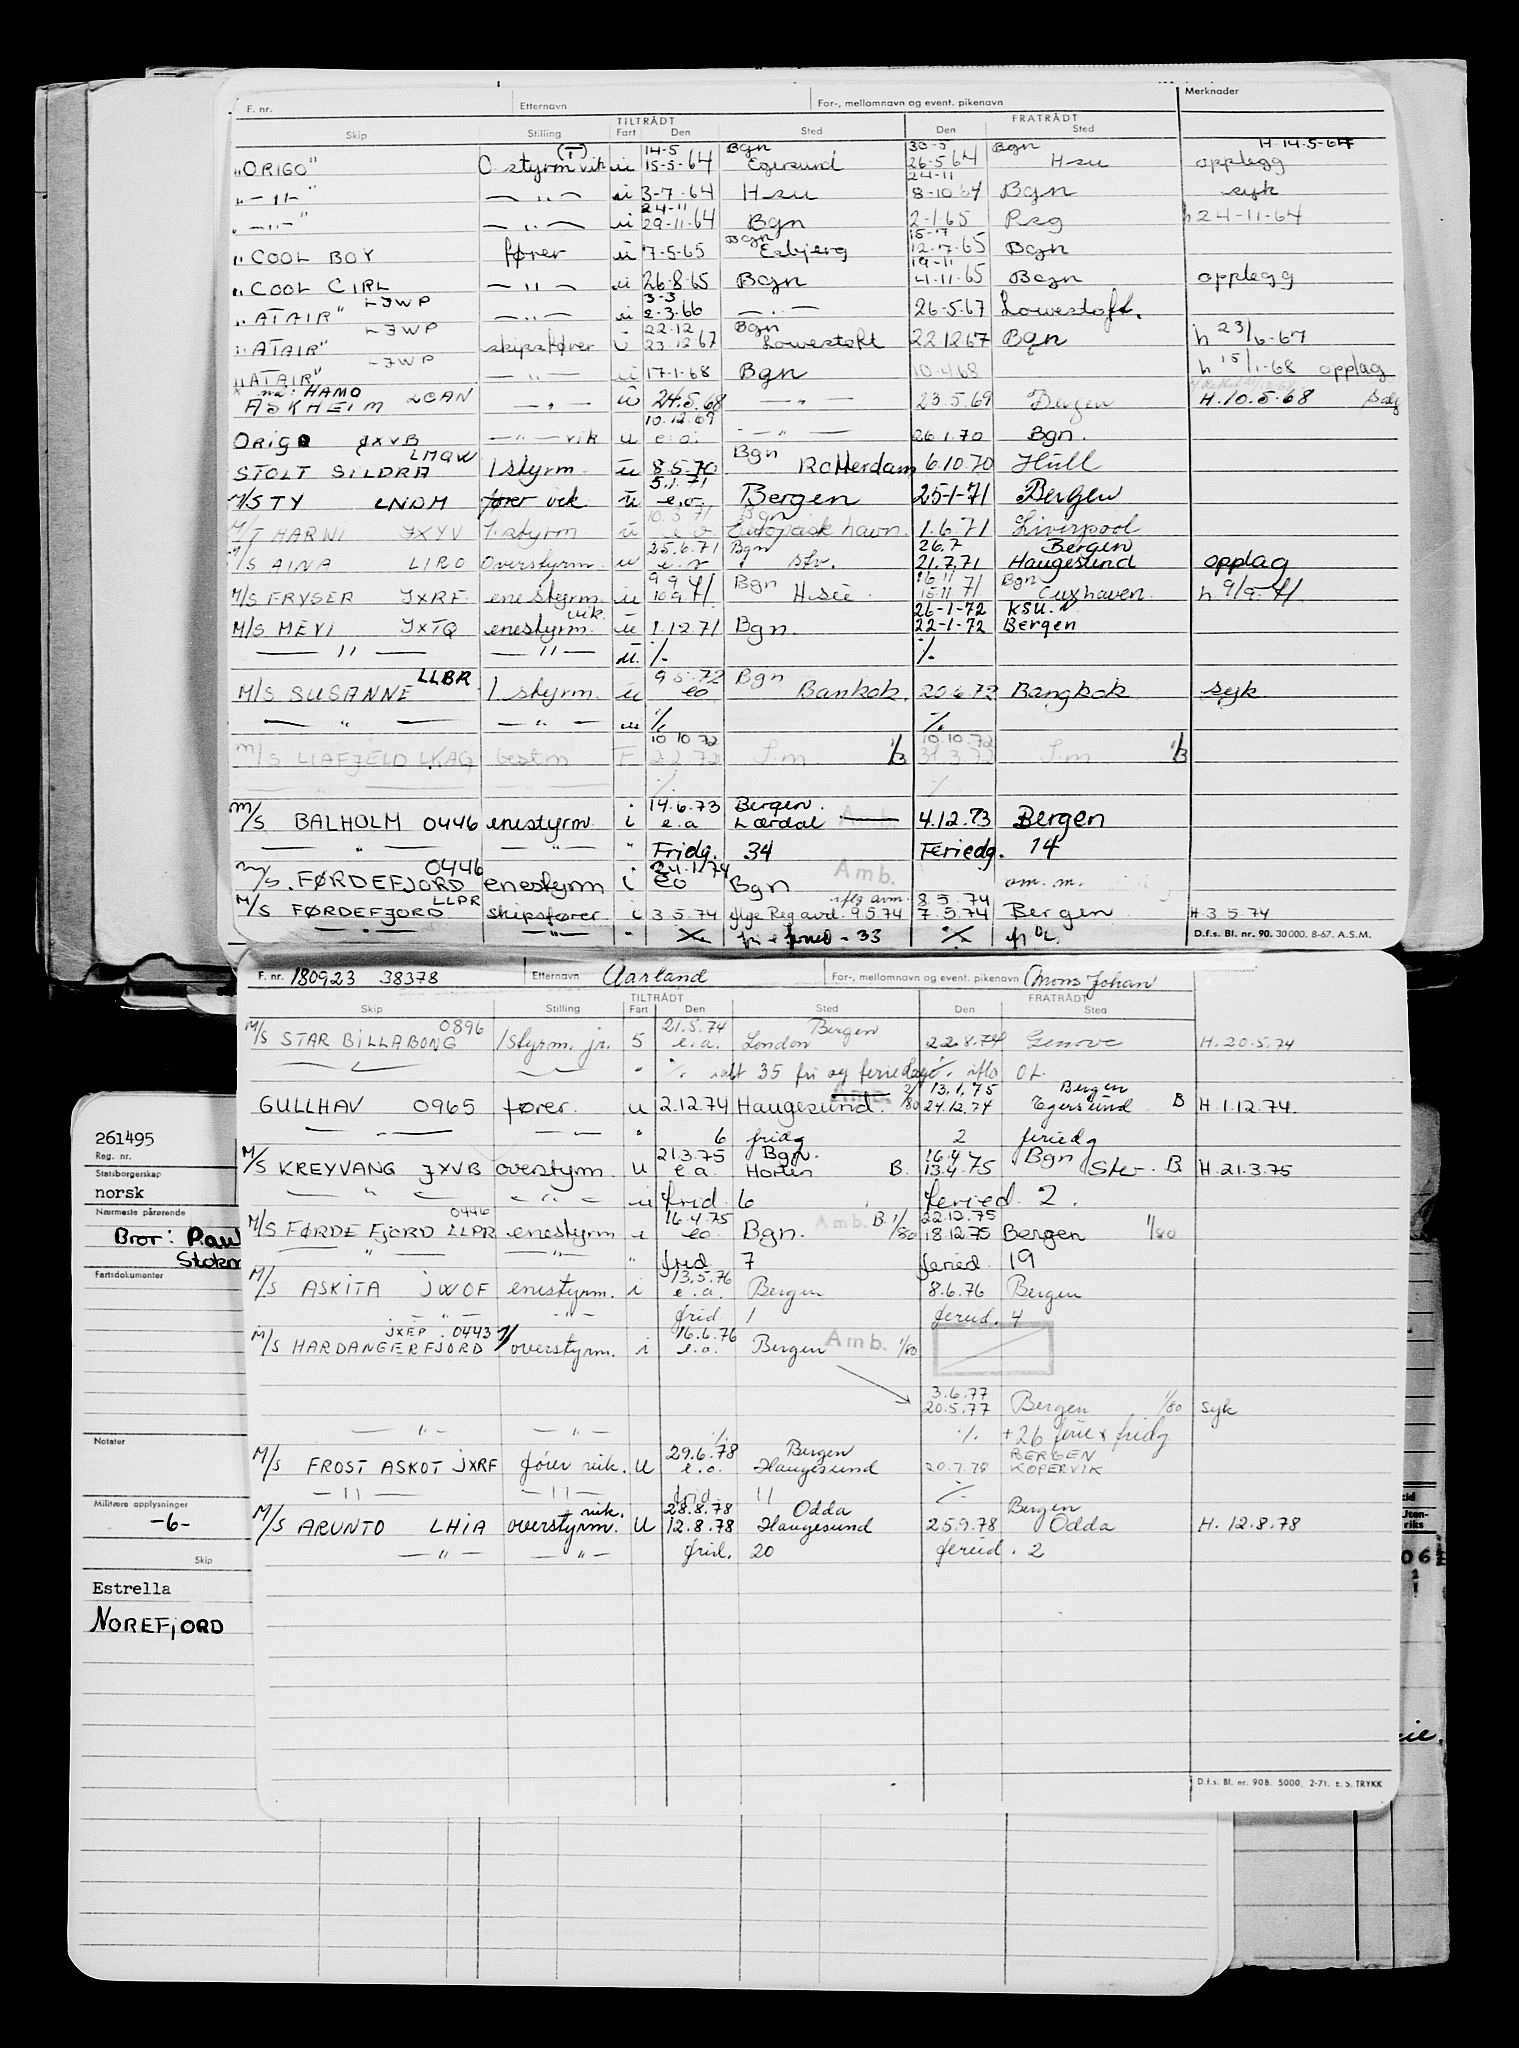 F. nr. Etternavn For-, mellomnavn og event. pikenavn Merknader
TILTRÅDT FRATRÅDT
Skip Stilling Fart Den Sted Den Sted
(T) 14-5 Bgn 30-5 Bgn H.14.5-64
"ORIGO" O styrm vik u 15-5-64 Egersund 26-5 64 Hsu opplegg
24-11
" — " — " — " — u 3-7-64 Hsu 8-10-64 Bgn syk
24-11
" — " — " — " — u 29-11-64 Bgn 2-1-65 h 24-11-64
Bgn 15-7
"COOL BOY fører u 7-5-65 Esbjerg 12-7-65 Bgn
19-11
"COOL GIRL — " — u 26-8-65 Bgn 4-11-65 Bgn opplegg
LJWP 3-3
"ATAIR" — " — u 2-3-66 — " — 26-5-67 Lowestoft.
LJWP 22.12 Bgn
"ATAIR" skipsfører u 23.12.67 Lowestoft 22.12 67 Bgn h 23/6-67
LJWP
"ATAIR" — " — u 17-1-68 Bgn 10-4 68 h 15/1-68 opplag
nå: HAMO
ASKHEIM LGAN — " — u 24.5.68 — " — 23.5.69 Bergen H.10.5-68
10.12.69
ORIGO JXVB — " — vik u e.o. — " — 26.1.70 Bgn.
LMQW Bgn
STOLT SILDRA 1 styrm. u 8.5.70 Rotterdam 6.10 70 Hull
5.1.71
M/S TY LNDM fører vik u e.o. Bergen 25-1-71 Bergen
10.3.71 Bgn
M/T HARWI JXYV 1. styrm u e o Europeisk havn. 1.6.71 Liverpool
25.6.71 Bgn 26.7 Bergen
M/S AINA LIRO Overstyrm. u stv. 21.7.71 Haugesund opplag
9.9.71 Bgn 16.11 Bgn
M/S FRYSER JXRF enestyrm. u 10 9 71 15.11 71 Cuxhaven. h 9/9-71
vik. 26-1-72 KSU.
M/S MEVI JXTQ enestyrm. u 1.12.71 Bgn. 22-1-72 Bergen
— " — — " — u. %. %.
LLBR 9 5.72 Bgn
M/S SUSANNE 1 styrm. u eo Bankok. 20.6.72 Bangkok syk
— " — — " — u %. %.
10 10 72 10.10.72
M/S LIAFJELD LKAG bestm F 2.2.72 S.m 1/B 31.3.72 S.m 1/B
14.6.73 Bergen.
M/S BALHOLM 0446 enestyrm. i e.a Lærdal Amb. 4.12.73 Bergen
— " — — " — " Fridg. 34 Feriedg. 14
0446 24.1.74
M/S. FØRDEFJORD enestyrm i eo Bgn Amb. om. m.
LLPR iflg avm. 8 5.74
M/S FØRDEFJORD skipsfører. i 3.5.74 iflge Reg avd. 9 5.74 7.5.74 Bergen H 3.5.74
— " — — " — " %. 33 %.
D.f.s. Bl. nr. 90. 30000. 8-67. A.S.M.
F. nr. 180923 38378 Etternavn Aarland For-, mellomnavn og event. pikenavn Mons Johan
TILTRÅDT FRATRÅDT
Skip Stilling Fart Den Sted Den Sted
0896 21.5.74 Bergen
M/S STAR BILLABONG 1 styrm. jr. S e.a. London 22.8.74 Genova H. 20.5.74
— " %. ialt 35 fri og feriedager. iflg OL.
Amb. 13.1.75 Bergen
GULLHAV 0965 fører. u 2.12.74 Haugesund. 1/80 24.12.74 Egersund B H.1.12.74.
— — " — " 6 fridg 2 feriedg
21.3.75 Bgn. 16.4.75 Bgn
M/S KREYVANG JXVB overstyrm. u e.a. Horten B. 13.4.75 B H.21.3.75
— " — — " — u frid. 6 feried. 2.
0446 16.4.75 Amb. B. 1/80 22.12.75
M/S FØRDE FJORD LLPR enestyrm i eo. Bgn. 18.12.75 Bergen 1/80
— " — — " — " frid 7 feried. 19
13.5.76
M/S ASKITA JWOF enestyrm. i e.a. Bergen 8.6.76 Bergen
— " — — " — frid 1 feried. 4
JXEP. 0443 16.6.76
M/S HARDANGERFJORD overstyrm. i e.o. Bergen Amb. 1/80
3.6.77
20.5.77 Bergen 1/80 syk
— " — — " — %. %. +26 ferie & fridg
29.6.78 Bergen BERGEN
M/S FROST ASKOT JXRF fører vik. U e.o. Haugesund 20.7.78 KOPERVIK
— " — — " — frid. 11 %
vik. 28.8.78 Odda Bergen
M/S ARUNTO LHIA overstyrm. U 12.8.78 Haugesund 25.9.78 Odda H. 12.8.78
— " — — " — frid. 20 feried. 2
D.f.s. Bl. nr. 90B. 5000. 2-71. E.S. TRYKK
261495
Reg. nr.
Statsborgerskap
norsk
Nærmeste pårørende
Bror: Paul
Fartsdokumenter
Notater
Militære opplysninger
-6-
Skip
Estrella
NOREFJORD